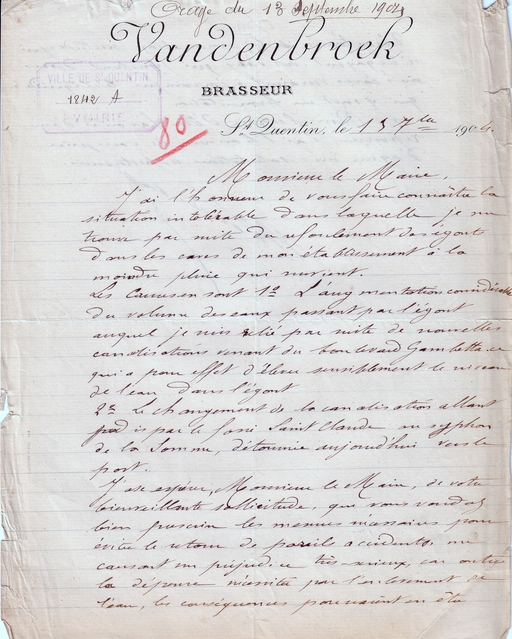 Orage du 13 Septembre 1904
Vandenbroek
BRASSEUR
VILLE DE St QUENTIN
1242 A
VOIRIE
80
St Quentin, le 15 7bre 1904.
Monsieur le Maire,
J'ai l'honneur de vous faire connaître la
situation intolérable dans laquelle je me
trouve par suite du refoulement des égouts
dans les caves de mon établissement à la
moindre pluie qui survient.
Les Causes en sont 1º L'augmentation considérable
du volume des eaux passant par l'égout
auquel je suis relié par suite de nouvelles
canalisations venant du boulevard Gambetta ce
qui a pour effet d'élever sensiblement le niveau
de l'eau dans l'égout
2º Le changement de la canalisation allant
jadis par le fossé Saint Claude au syphon
de la Somme, détournée aujourd'hui vers le
port.
J'ose espérer, Monsieur le Maire, de votre
bienveillante sollicitude, que vous voudrez
bien prescrire les mesures nécessaires pour
éviter le retour de pareils accidents, me
causant un préjudice très-sérieux, car outre
la dépense nécessitée par l'enlèvement de
l'eau, les conséquences pourraient en être